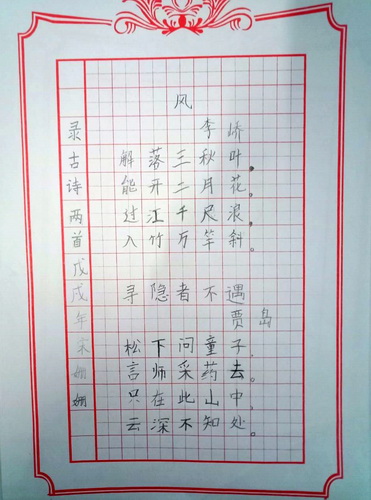 风
李峤
解落三秋叶，
能开二月花。
过江千尺浪，
入竹万竿斜。
寻隐者不遇
贾岛
松下问童子，
言师采药去。
只在此山中，
云深不知处。
录古诗两首戊戌年宋姗姗